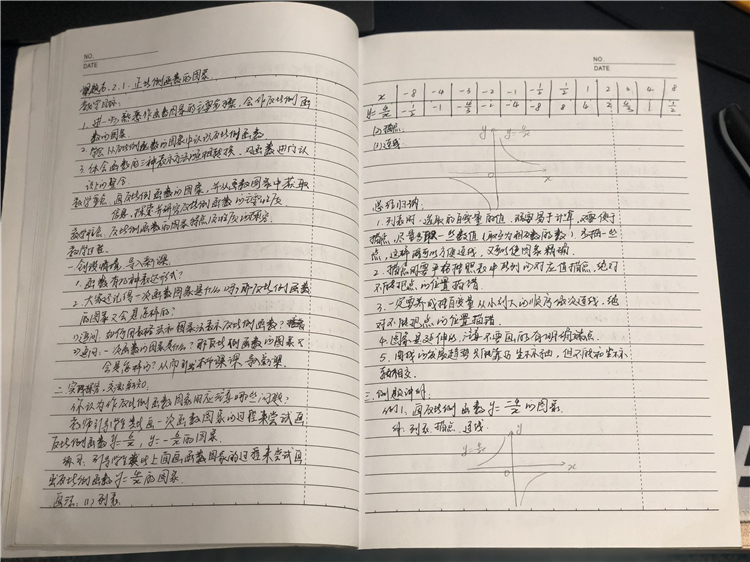 NO.
DATE
课题5.2.1. 反比例函数的图象.
教学目标:
1. 进一步熟悉作函数图象的主要步骤, 会作反比例函
数的图象.
2. 学会从反比例函数的图象中认识反比例函数
3. 体会函数的三种表示方法的相互转换, 对函数进行认
识上的整合.
教学重点: 画反比例函数的图象, 并从函数图象中获取
信息, 探索并研究反比例函数的主要性质
教学难点: 反比例函数的图象特点及性质的探究.
教学过程.
一. 创设情境, 导入新课.
1. 函数有几种表达形式?
2. 大家还记得一次函数图象是什么吗? 那反比例函数
的图象又会是怎样的?
追问: 如何用表格法和图象法表示反比例函数?
追问: 一次函数的图象是什么? 那反比例函数的图象又
会是怎样的? 从而引出本节课课, 导入新课.
二. 实践探索, 交流新知.
你认为作反比例函数图象时应注意哪些问题?
教师引导学生类比画一次函数图象的过程来尝试画
反比例函数 y=4/x, y=-4/x的图象.
练习: 引导学生类比上面画函数图象的过程来尝试画
出反比例函数 y=4/x的图象.
画法: (1) 列表
NO.
DATE
x -8 -4 -3 -2 -1 -1/2 1/2 1 2 3 4 8
y=4/x -1/2 -1 -4/3 -2 -4 -8 8 4 2 4/3 1 1/2
(2) 描点
(3) 连线
y y=4/x
0 x
总结归纳:
1. 列表时, 选取的自变量的值, 既要易于计算, 又要便于
描点, 尽量多取一些数值 (取互为相反数的数), 多描一些
点, 这样既可以方便连线, 又可以使图象精确.
2. 描点时要严格按照表中所列的对应值描点, 绝对
不能把点的位置描错.
3. 一定要养成按自变量从小到大的顺序依次连线, 绝
对不能把点的位置描错.
4. 图象是延伸的, 注意不要画成有明确端点.
5. 曲线的发展趋势只能靠近坐标轴, 但不能和坐标
轴相交.
三. 例题讲解:
例1. 画反比例函数 y=-4/x的图象.
解: 列表, 描点, 连线
y
y=-4/x
0 x